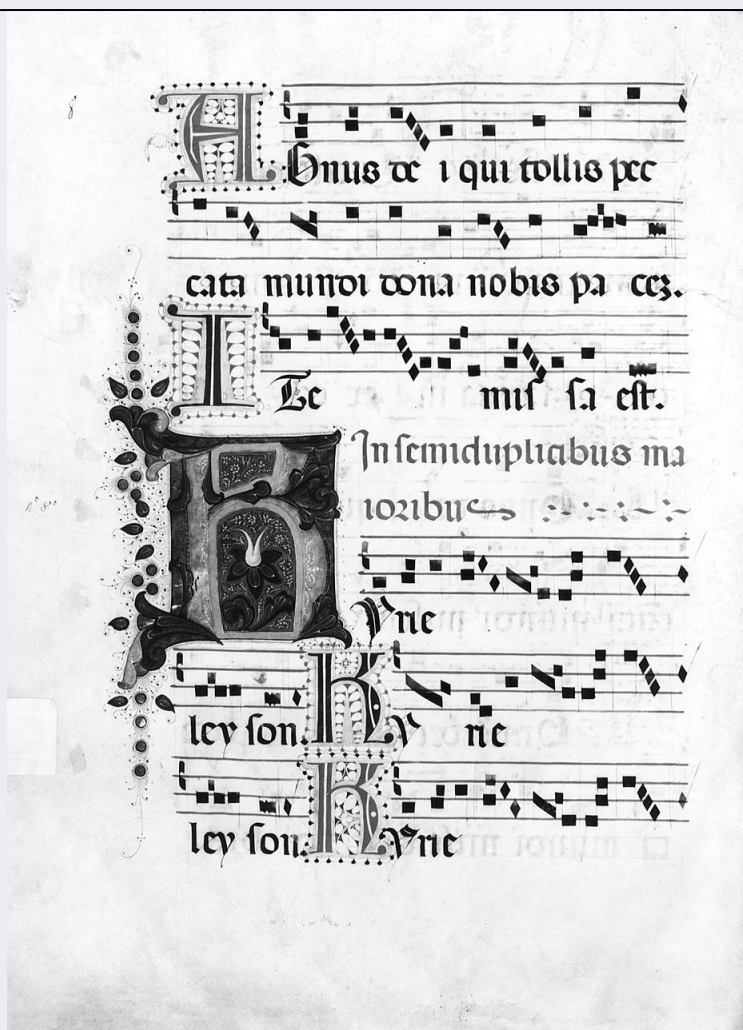 8
AGnus de i qui tollis pec
cata mundi dona nobis pa cez.
ITe mis sa est.
In semiduplicibus ma
ioribus
Kyrie
ley son. Ky rie
ley son. Kyrie